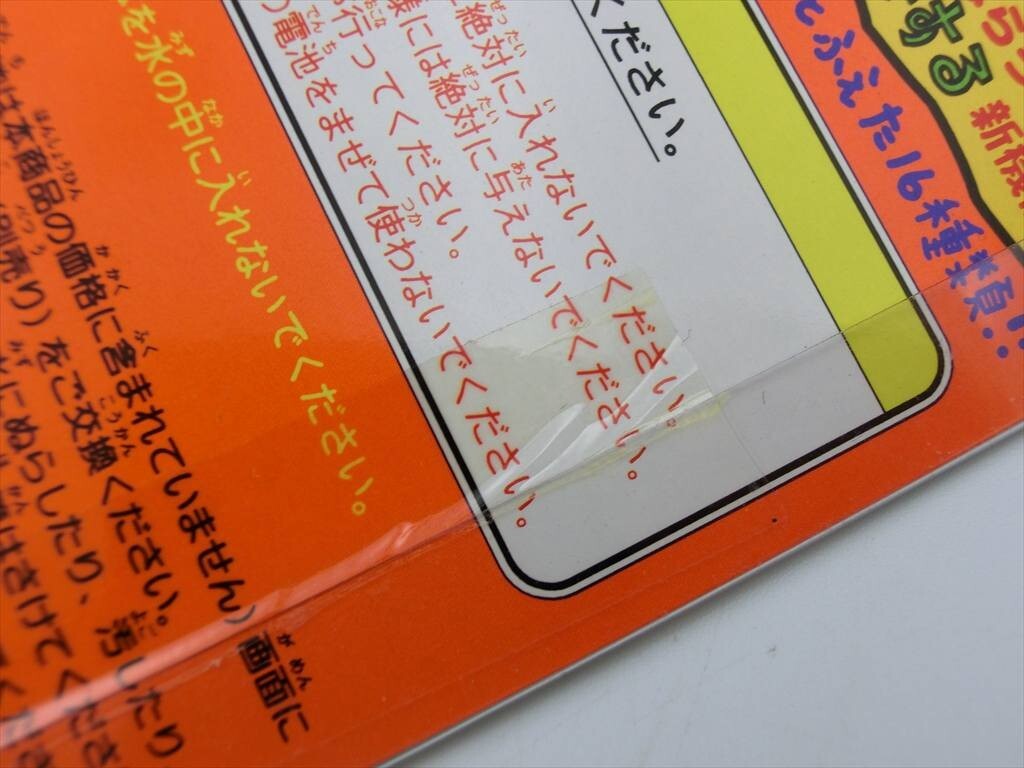 らっ
する 新機
とふえた16種類!!
ください。
絶対に入れないでください。
様には絶対に与えないでください。
行ってください。
電池をまぜて使わないでください。
を水の中に入れないでください。
は本商品の価格に含まれていません)画面に
別売り)をご交換ください。汚したり
にぬらしたり、
はさけてくださ